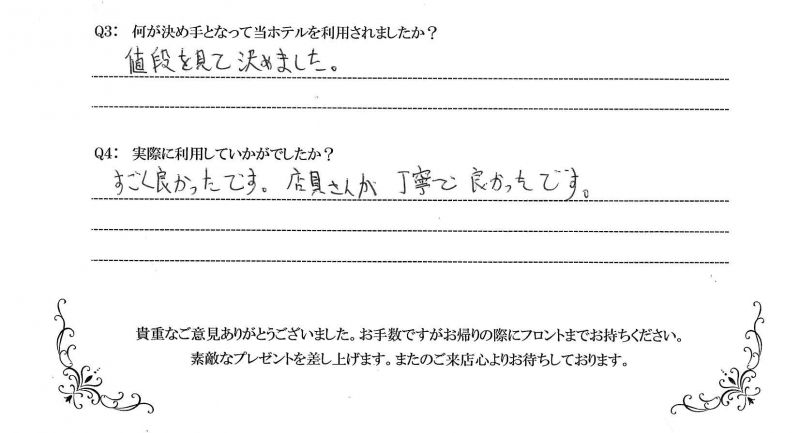 Q3: 何が決め手となって当ホテルを利用されましたか？
値段を見て決めました。
Q4: 実際に利用していかがでしたか？
すごく良かったです。店員さんが丁寧で良かったです。
貴重なご意見ありがとうございました。お手数ですがお帰りの際にフロントまでお持ちください。
素敵なプレゼントを差し上げます。またのご来店心よりお待ちしております。